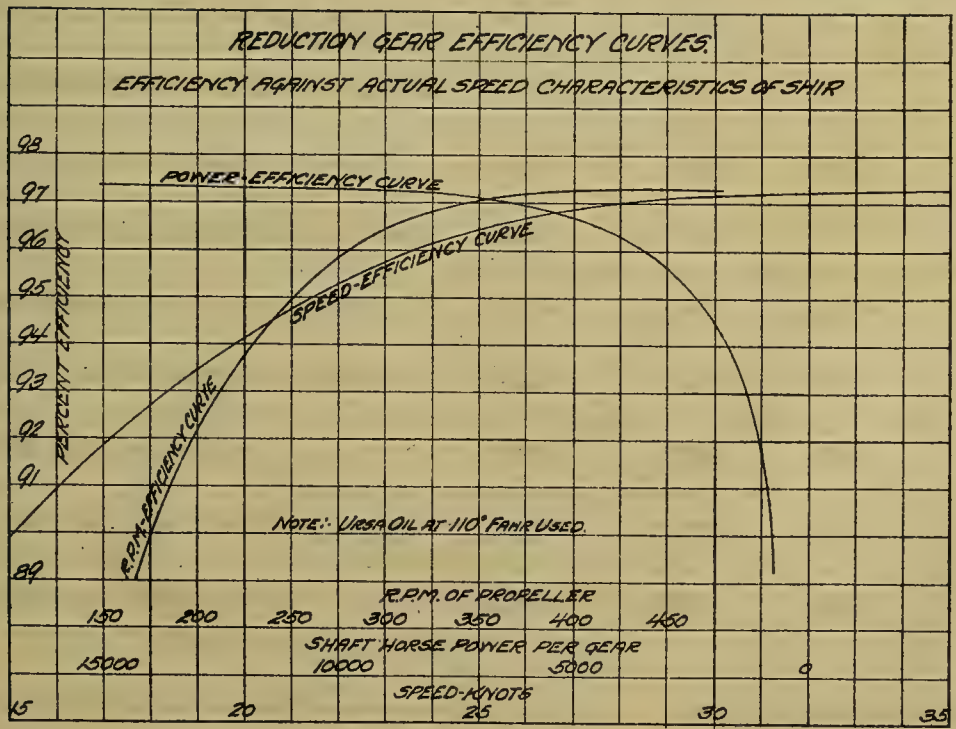 REDUCTION GEAR EFFICIENCY CURVES.
EFFICIENCY AGAINST ACTUAL SPEED CHARACTERISTICS OF SHIP
98
POWER-EFFICIENCY CURVE
97
96
SPEED-EFFICIENCY CURVE
PERCENT EFFICIENCY
95
94
93
R.P.M.-EFFICIENCY CURVE
92
91
NOTE:- URSA OIL AT 110° FAHR USED.
89
R.P.M. OF PROPELLER
150 200 250 300 350 400 450
SHAFT HORSE POWER PER GEAR
15000 10000 5000 0
SPEED-KNOTS
15 20 25 30 35